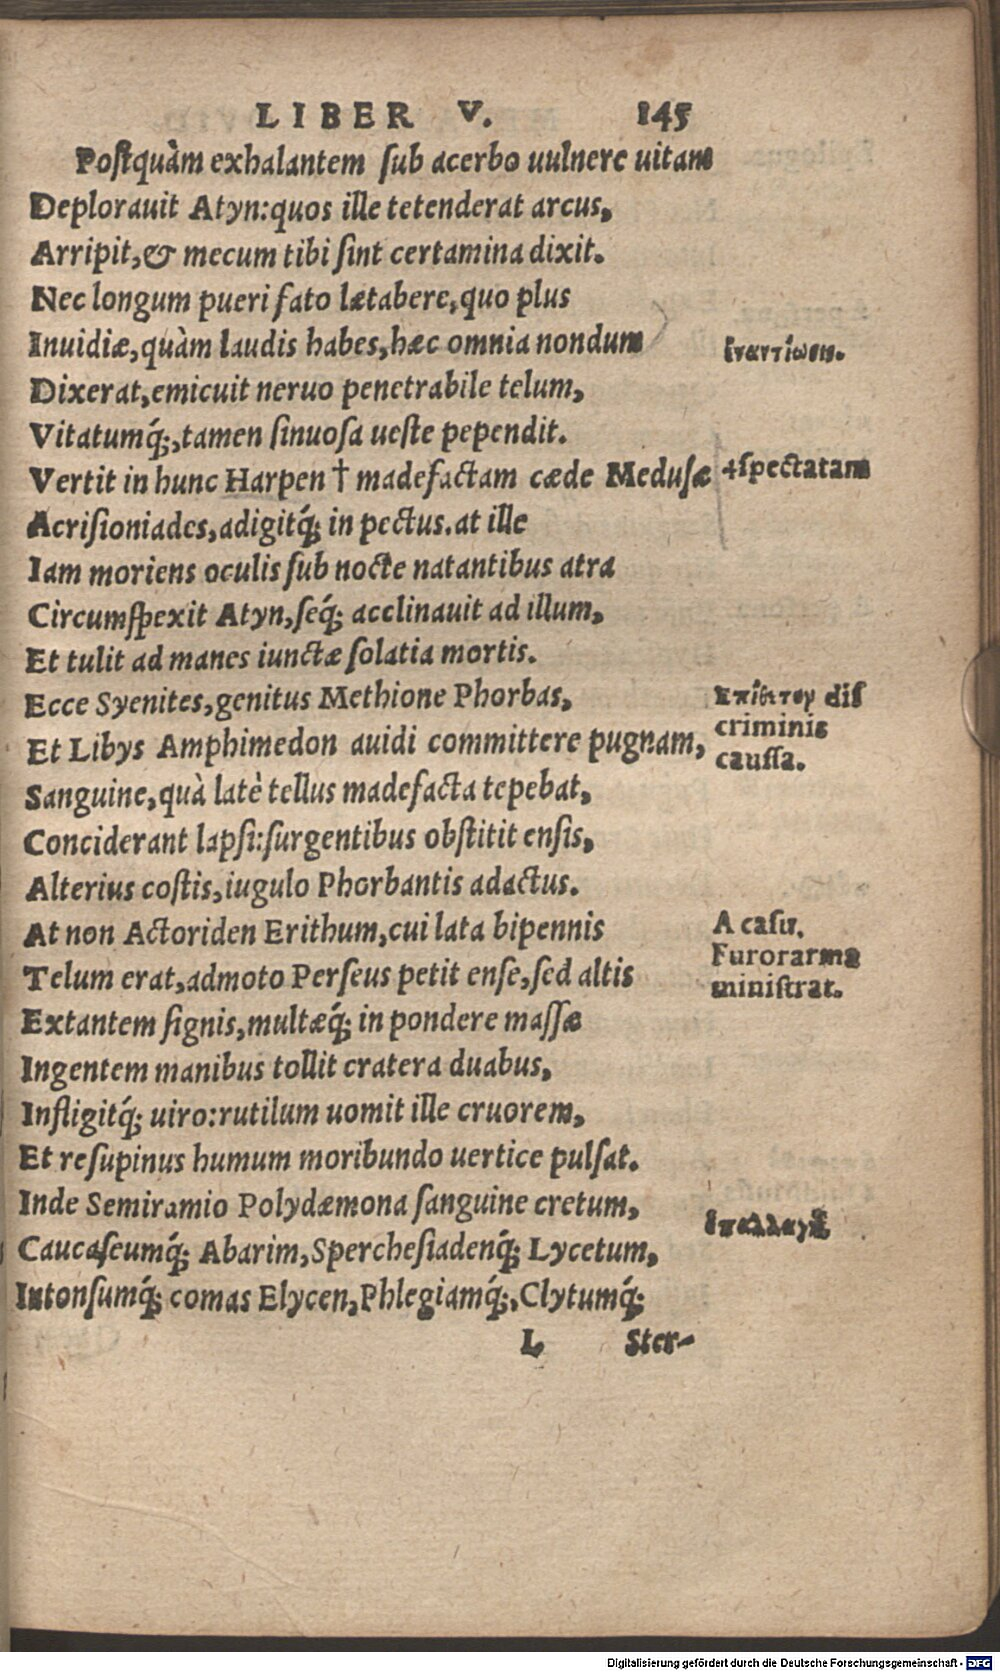 LIBER V. 145
Postquàm exhalantem sub acerbo uulnere uitam
Deplorauit Atyn:quos ille tetenderat arcus,
Arripit,& mecum tibi sint certamina dixit.
Nec longum pueri fato lætabere,quo plus
Inuidiæ,quàm laudis habes,hæc omnia nondum
ἐναντίωσις.
Dixerat,emicuit neruo penetrabile telum,
Vitatumq́;,tamen sinuosa ueste pependit.
Vertit in hunc Harpen † madefactam cæde Medusæ
†spectatam
Acrisioniades,adigitq́; in pectus.at ille
Iam moriens oculis sub nocte natantibus atra
Circumspexit Atyn,seq́; acclinauit ad illum,
Et tulit ad manes iunctæ solatia mortis.
Ecce Syenites,genitus Methione Phorbas,
Ἐπίθετον dis
criminis
caussa.
Et Libys Amphimedon auidi committere pugnam,
Sanguine,quà latè tellus madefacta tepebat,
Conciderant lapsi:surgentibus obstitit ensis,
Alterius costis,iugulo Phorbantis adactus.
At non Actoriden Erithum,cui lata bipennis
A casu.
Furor arma
ministrat.
Telum erat,admoto Perseus petit ense,sed altis
Extantem signis,multæq́; in pondere massæ
Ingentem manibus tollit cratera duabus,
Infligitq́; uiro:rutilum uomit ille cruorem,
Et resupinus humum moribundo uertice pulsat.
Inde Semiramio Polydæmona sanguine cretum,
ὑπαλλαγή
Caucaseumq́; Abarim,Sperchesiadenq́; Lycetum,
Intonsumq́; comas Elycen,Phlegiamq́;,Clytumq́;
L Ster-
Digitalisierung gefördert durch die Deutsche Forschungsgemeinschaft - DFG